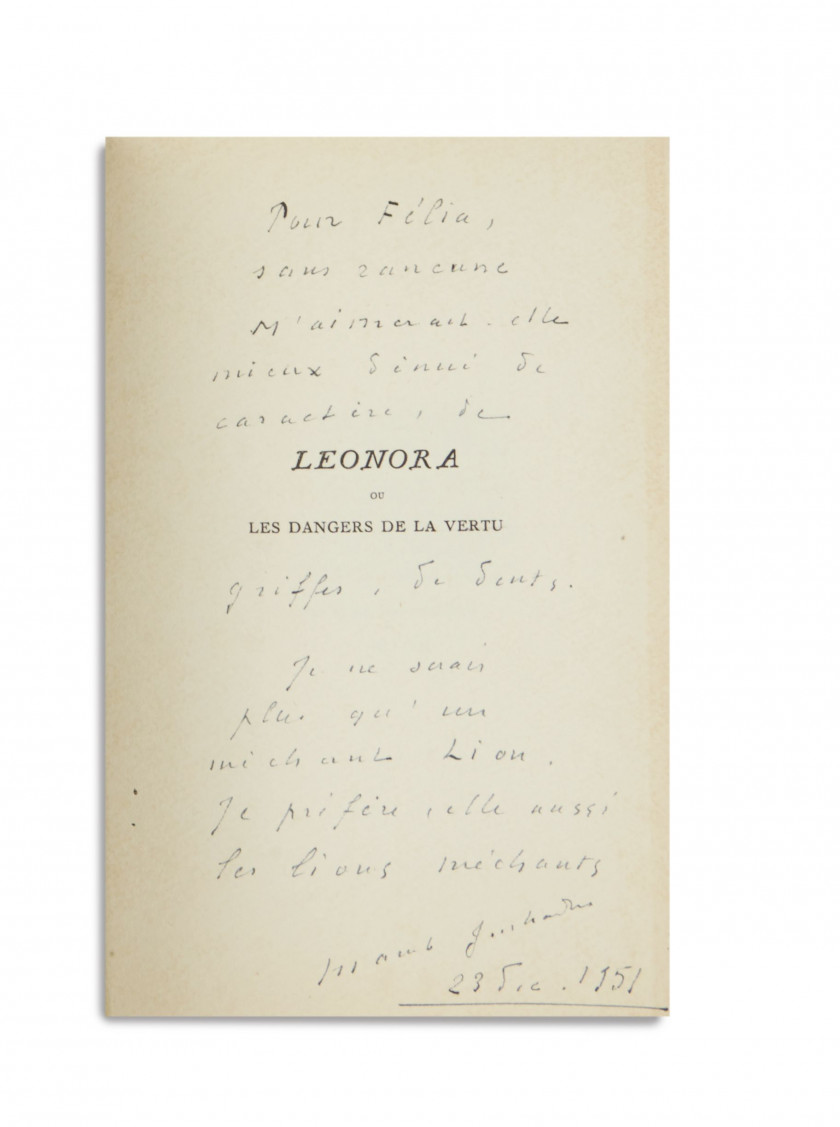 Pour Félia,
sans rancune
M'aimerait-elle
mieux dénué de
caractère, de
LEONORA
OU
LES DANGERS DE LA VERTU
griffes, de dents.
Je ne serais
plus qu'un
méchant Lion.
Je préfère, elle aussi
les lions méchants
23 Déc. 1951